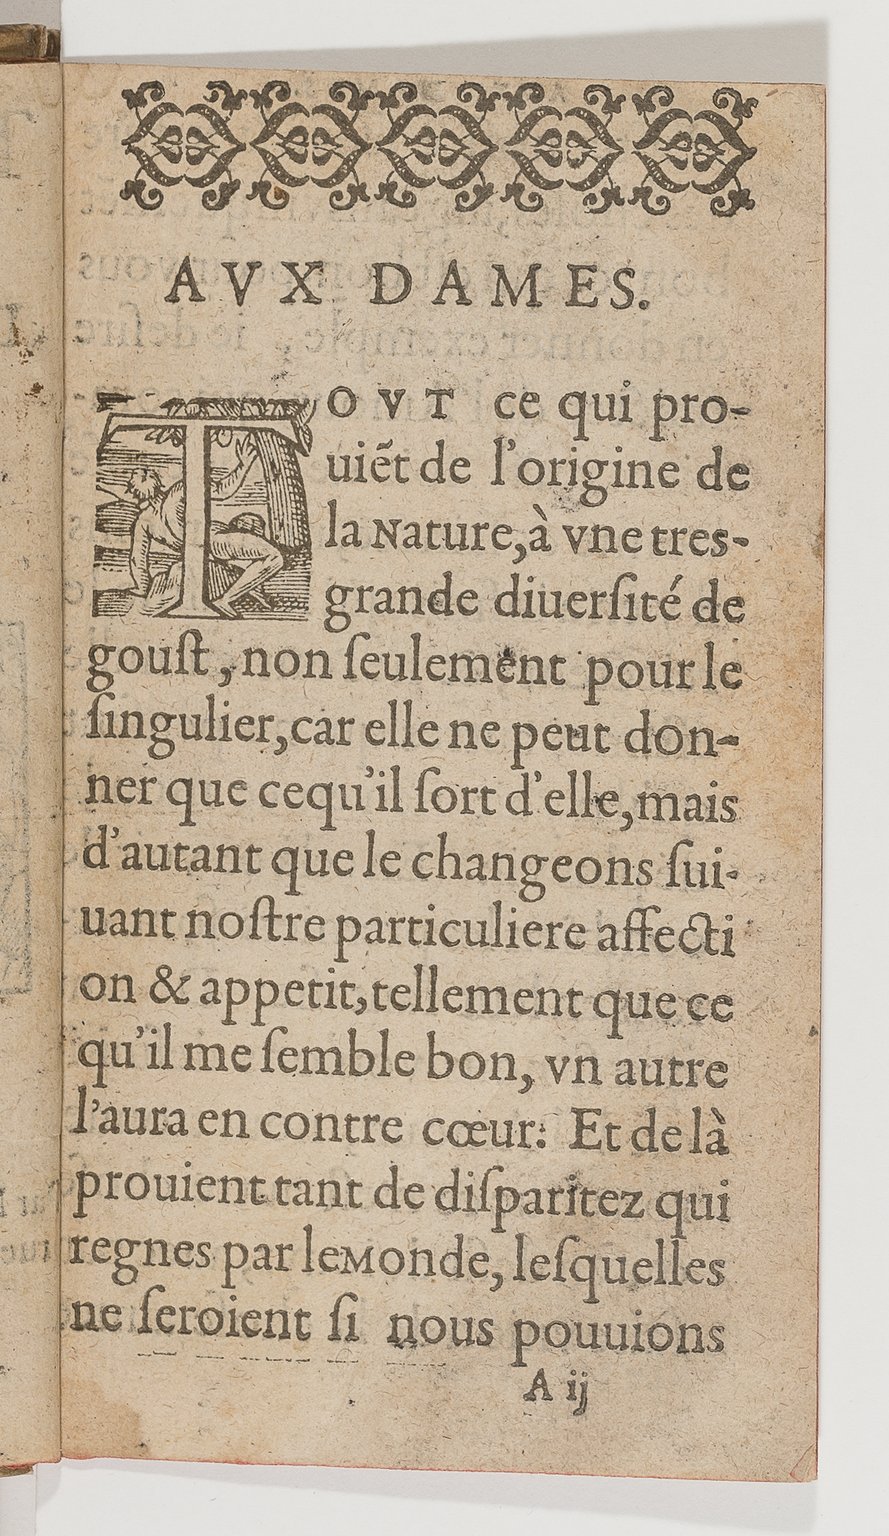 AVX DAMES.
TOVT ce qui pro-
uiẽt de l'origine de
la Nature, à vne tres-
grande diuerſité de
gouſt, non ſeulement pour le
ſingulier, car elle ne peut don-
ner que cequ'il ſort d'elle, mais
d'autant que le changeons ſui-
uant noſtre particuliere affecti
on & appetit, tellement que ce
qu'il me ſemble bon, vn autre
l'aura en contre cœur: Et de là
prouient tant de diſparitez qui
regnes par le Monde, leſquelles
ne ſeroient ſi nous pouuions
A ij